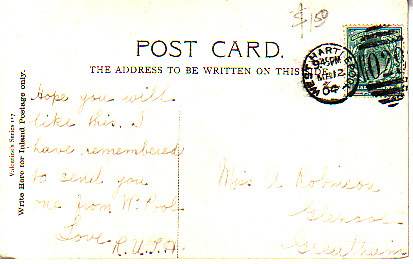 $1.50
POST CARD.
THE ADDRESS TO BE WRITTEN ON THIS SIDE.
WEST HARTLEPOOL
.45PM
12
04
Valentine's Series
Write Here for Inland Postage only.
Hope you will
like this. I
have remembered
to send you
one from W.
Love
Miss A Robinson
Greatham